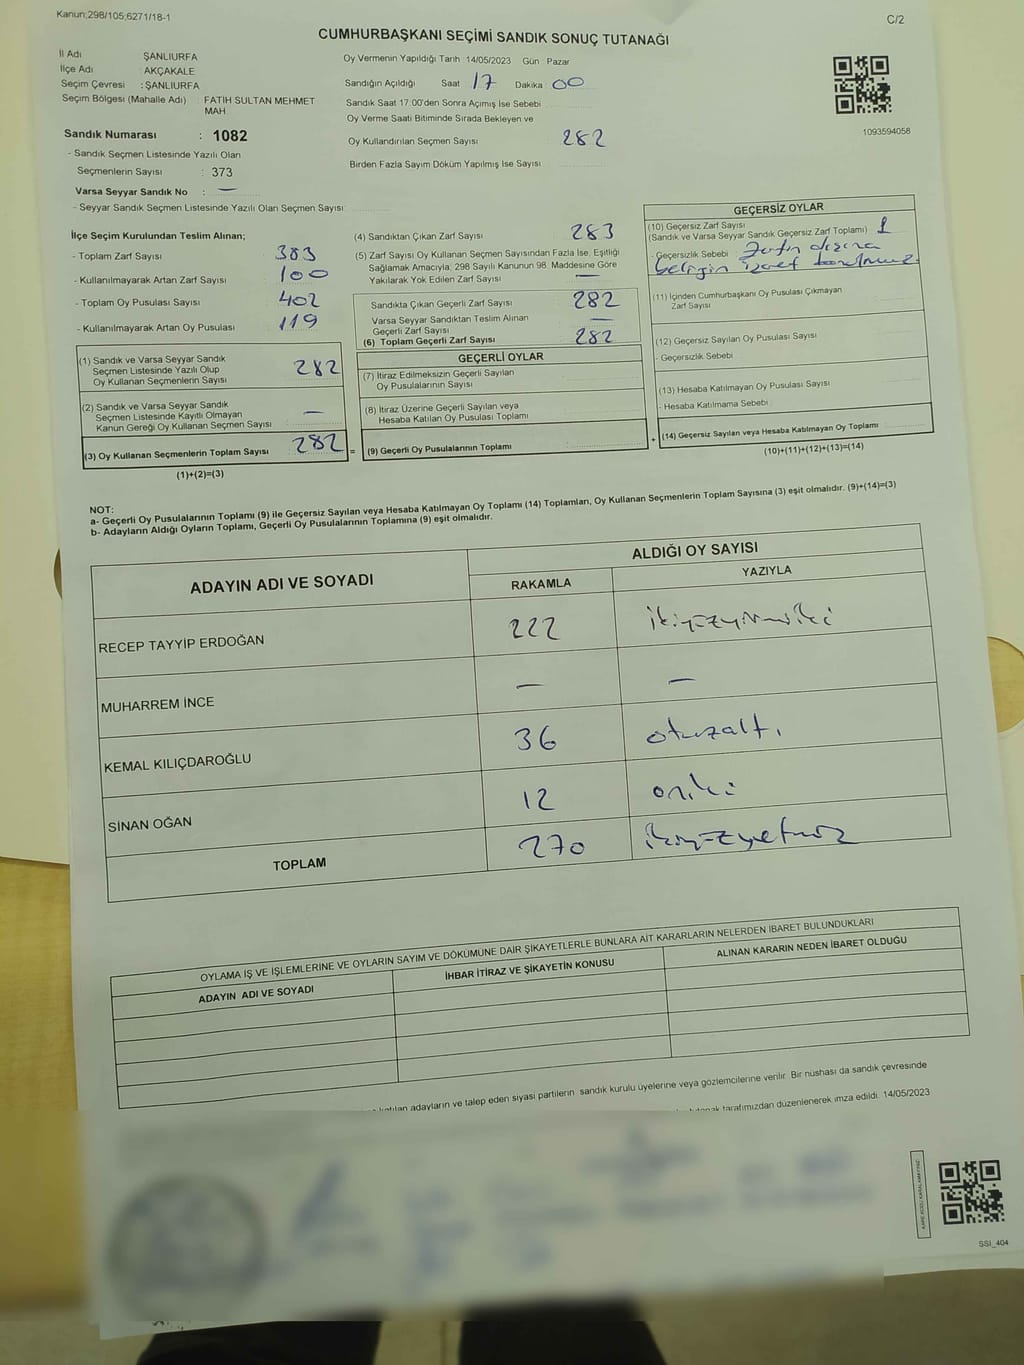 Kanun;298/105,6271/18-1
C/2
CUMHURBAŞKANI SEÇİMİ SANDIK SONUÇ TUTANAĞI
İl Adı ŞANLIURFA
İlçe Adı AKÇAKALE
Seçim Çevresi : ŞANLIURFA
Seçim Bölgesi (Mahalle Adı) : FATİH SULTAN MEHMET
MAH.
Sandık Numarası : 1082
- Sandık Seçmen Listesinde Yazılı Olan
Seçmenlerin Sayısı : 373
Varsa Seyyar Sandık No : —
- Seyyar Sandık Seçmen Listesinde Yazılı Olan Seçmen Sayısı:
Oy Vermenin Yapıldığı Tarih 14/05/2023 Gün Pazar
Sandığın Açıldığı Saat 17 Dakika 00
Sandık Saat 17.00'den Sonra Açımış İse Sebebi
Oy Verme Saati Bitiminde Sırada Bekleyen ve
Oy Kullandırılan Seçmen Sayısı 282
Birden Fazla Sayım Döküm Yapılmış İse Sayısı
1093594058
İlçe Seçim Kurulundan Teslim Alınan;
- Toplam Zarf Sayısı 383
- Kullanılmayarak Artan Zarf Sayısı 100
- Toplam Oy Pusulası Sayısı 402
- Kullanılmayarak Artan Oy Pusulası 119
(1) Sandık ve Varsa Seyyar Sandık
Seçmen Listesinde Yazılı Olup
Oy Kullanan Seçmenlerin Sayısı 282
(2) Sandık ve Varsa Seyyar Sandık
Seçmen Listesinde Kayıtlı Olmayan
Kanun Gereği Oy Kullanan Seçmen Sayısı —
(3) Oy Kullanan Seçmenlerin Toplam Sayısı 282
(1)+(2)=(3)
(4) Sandıktan Çıkan Zarf Sayısı 283
(5) Zarf Sayısı Oy Kullanan Seçmen Sayısından Fazla İse, Eşitliği
Sağlamak Amacıyla, 298 Sayılı Kanunun 98. Maddesine Göre
Yakılarak Yok Edilen Zarf Sayısı —
Sandıkta Çıkan Geçerli Zarf Sayısı 282
Varsa Seyyar Sandıktan Teslim Alınan
Geçerli Zarf Sayısı —
(6) Toplam Geçerli Zarf Sayısı 282
GEÇERLİ OYLAR
(7) İtiraz Edilmeksizin Geçerli Sayılan
Oy Pusulalarının Sayısı
(8) İtiraz Üzerine Geçerli Sayılan veya
Hesaba Katılan Oy Pusulası Toplamı
= (9) Geçerli Oy Pusulalarının Toplamı
GEÇERSİZ OYLAR
(10) Geçersiz Zarf Sayısı
(Sandık ve Varsa Seyyar Sandık Geçersiz Zarf Toplamı) 1
- Geçersizlik Sebebi Zarfın dışına
belirgin işaret
(11) İçinden Cumhurbaşkanı Oy Pusulası Çıkmayan
Zarf Sayısı
(12) Geçersiz Sayılan Oy Pusulası Sayısı
- Geçersizlik Sebebi
(13) Hesaba Katılmayan Oy Pusulası Sayısı
- Hesaba Katılmama Sebebi
+ (14) Geçersiz Sayılan veya Hesaba Katılmayan Oy Toplamı
(10)+(11)+(12)+(13)=(14)
NOT:
a- Geçerli Oy Pusulalarının Toplamı (9) ile Geçersiz Sayılan veya Hesaba Katılmayan Oy Toplamı (14) Toplamları, Oy Kullanan Seçmenlerin Toplam Sayısına (3) eşit olmalıdır. (9)+(14)=(3)
b- Adayların Aldığı Oyların Toplamı, Geçerli Oy Pusulalarının Toplamına (9) eşit olmalıdır.
ADAYIN ADI VE SOYADI
ALDIĞI OY SAYISI
RAKAMLA YAZIYLA
RECEP TAYYİP ERDOĞAN 222 ikiyüzyirmiiki
MUHARREM İNCE — —
KEMAL KILIÇDAROĞLU 36 otuzaltı
SİNAN OĞAN 12 oniki
TOPLAM 270 ikiyüzyetmiş
OYLAMA İŞ VE İŞLEMLERİNE VE OYLARIN SAYIM VE DÖKÜMÜNE DAİR ŞİKAYETLERLE BUNLARA AİT KARARLARIN NELERDEN İBARET BULUNDUKLARI
ADAYIN ADI VE SOYADI İHBAR İTİRAZ VE ŞİKAYETİN KONUSU ALINAN KARARIN NEDEN İBARET OLDUĞU
katılan adayların ve talep eden siyasi partilerin sandık kurulu üyelerine veya gözlemcilerine verilir. Bir nüshası da sandık çevresinde
tutanak tarafımızdan düzenlenerek imza edildi. 14/05/2023
SSİ_404